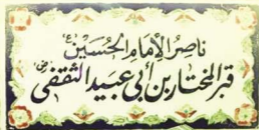 ناصر الإمام الحسين ع
قبر المختار بن أبي عبيد الثقفي رض